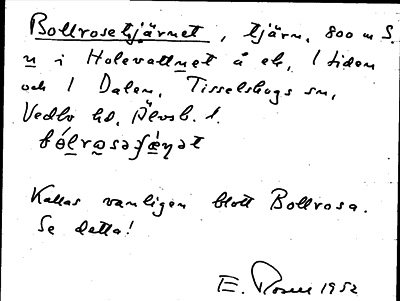 Bollrosetjärnet, tjärn, 800 m S.
n i Holevattnet å ek. 1 tiden
och 1 Dalen, Tisselskogs sn,
Vedbo hd, Älvsb. l.
Kallas vanligen blott Bollrosa.
Se detta!
E. Rosell 1952